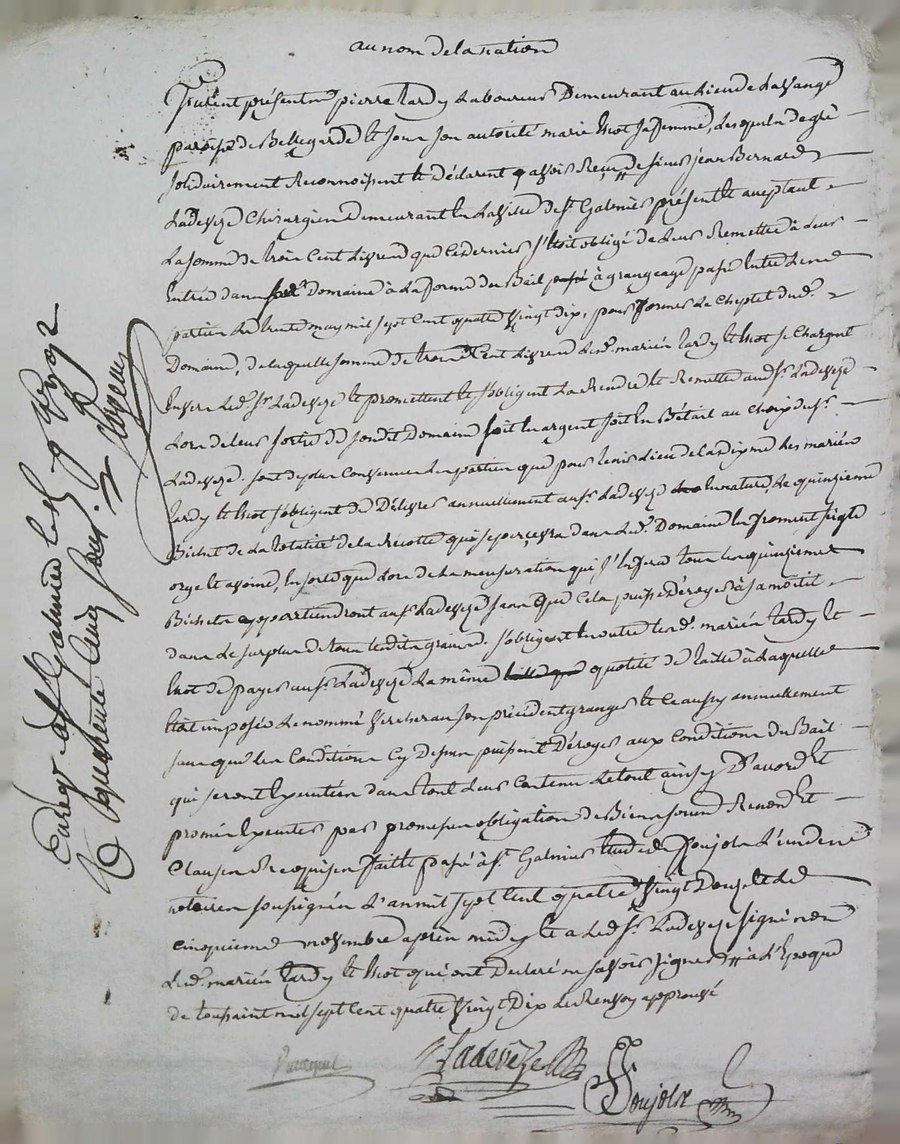 au nom de la nation
Furent présents pierre tardy Laboureur Demeurant au Lieu de
paroisse de Bellegarde et sous son autorité marie sa femme, Lesquels de gré
solidairement Reconnoissent et Déclarent avoir Reçu de sieur jean Bernard
Ladeveze Chirurgien Demeurant en La ville de St Galmier présent et acceptant
La somme de trois Cent Livres que Ce dernier s'étoit obligé de Leur Remettre à Leur
Entrée dans son Domaine à La forme du Bail à grangeage passé Entre Les
parties Le trente may mil sept Cent quatre Vingt dix, pour former Le Cheptel dud.
Domaine, de laquelle somme de trois Cent Livres Led. mariés tardy et se Chargent
Envers Led. Sr Ladeveze et promettent et s'obligent La Rendre et Remettre aud. Sr Ladeveze
Lors de Leur sortie dudit Domaine soit en argent soit en Bétail au Choix du Sr
Ladeveze. sont de plus Convenues Les parties que pour tenir Lieu de La dixme Les mariés
tardy et s'obligent de Délivrer annuellement au Sr Ladeveze en nature, Le quinzieme
Bichet de La totalité de La Recolte qui se percevra dans Led. Domaine En froment seigle
orge et avoine, En sorte que Lors de La mensuration qui s'En fera tous Les quinziemes
Bichets appartiendront au Sr Ladeveze sans que Cela puisse Déroger à sa moitié
dans Le surplus de tous Lesdits grains. s'obligent En outre Les d. mariés tardy et
de payer au Sr Ladeveze La même quotité de taille à Laquelle
étoit imposé Le nommé son précédent granger et Ce aussy annuellement
sans que Les Conditions Cy Dessus puissent Déroger aux Conditions du Bail
qui seront Exécutées dans tout Leur Contenu Le tout ainsy D'accord et
promis Exécuter par promesses obligation de Biens soumis Renond et
Clauses Requises faitte passé à St Galmier Etude de Poujols L'un des
notaires soussignés L'an mil sept Cent quatre Vingt Douze Le
cinquieme novembre après midy Et a Led. Sr Ladeveze signé non
Led. mariés tardy et qui ont Declaré ne savoir signer // à L'Epoque
de toussaint mil sept Cent quatre Vingt Dix de Renvoy approuvé
Ladevèze
Poujols
Enreg. à St Galmier Le
R quarente Cinq sous.